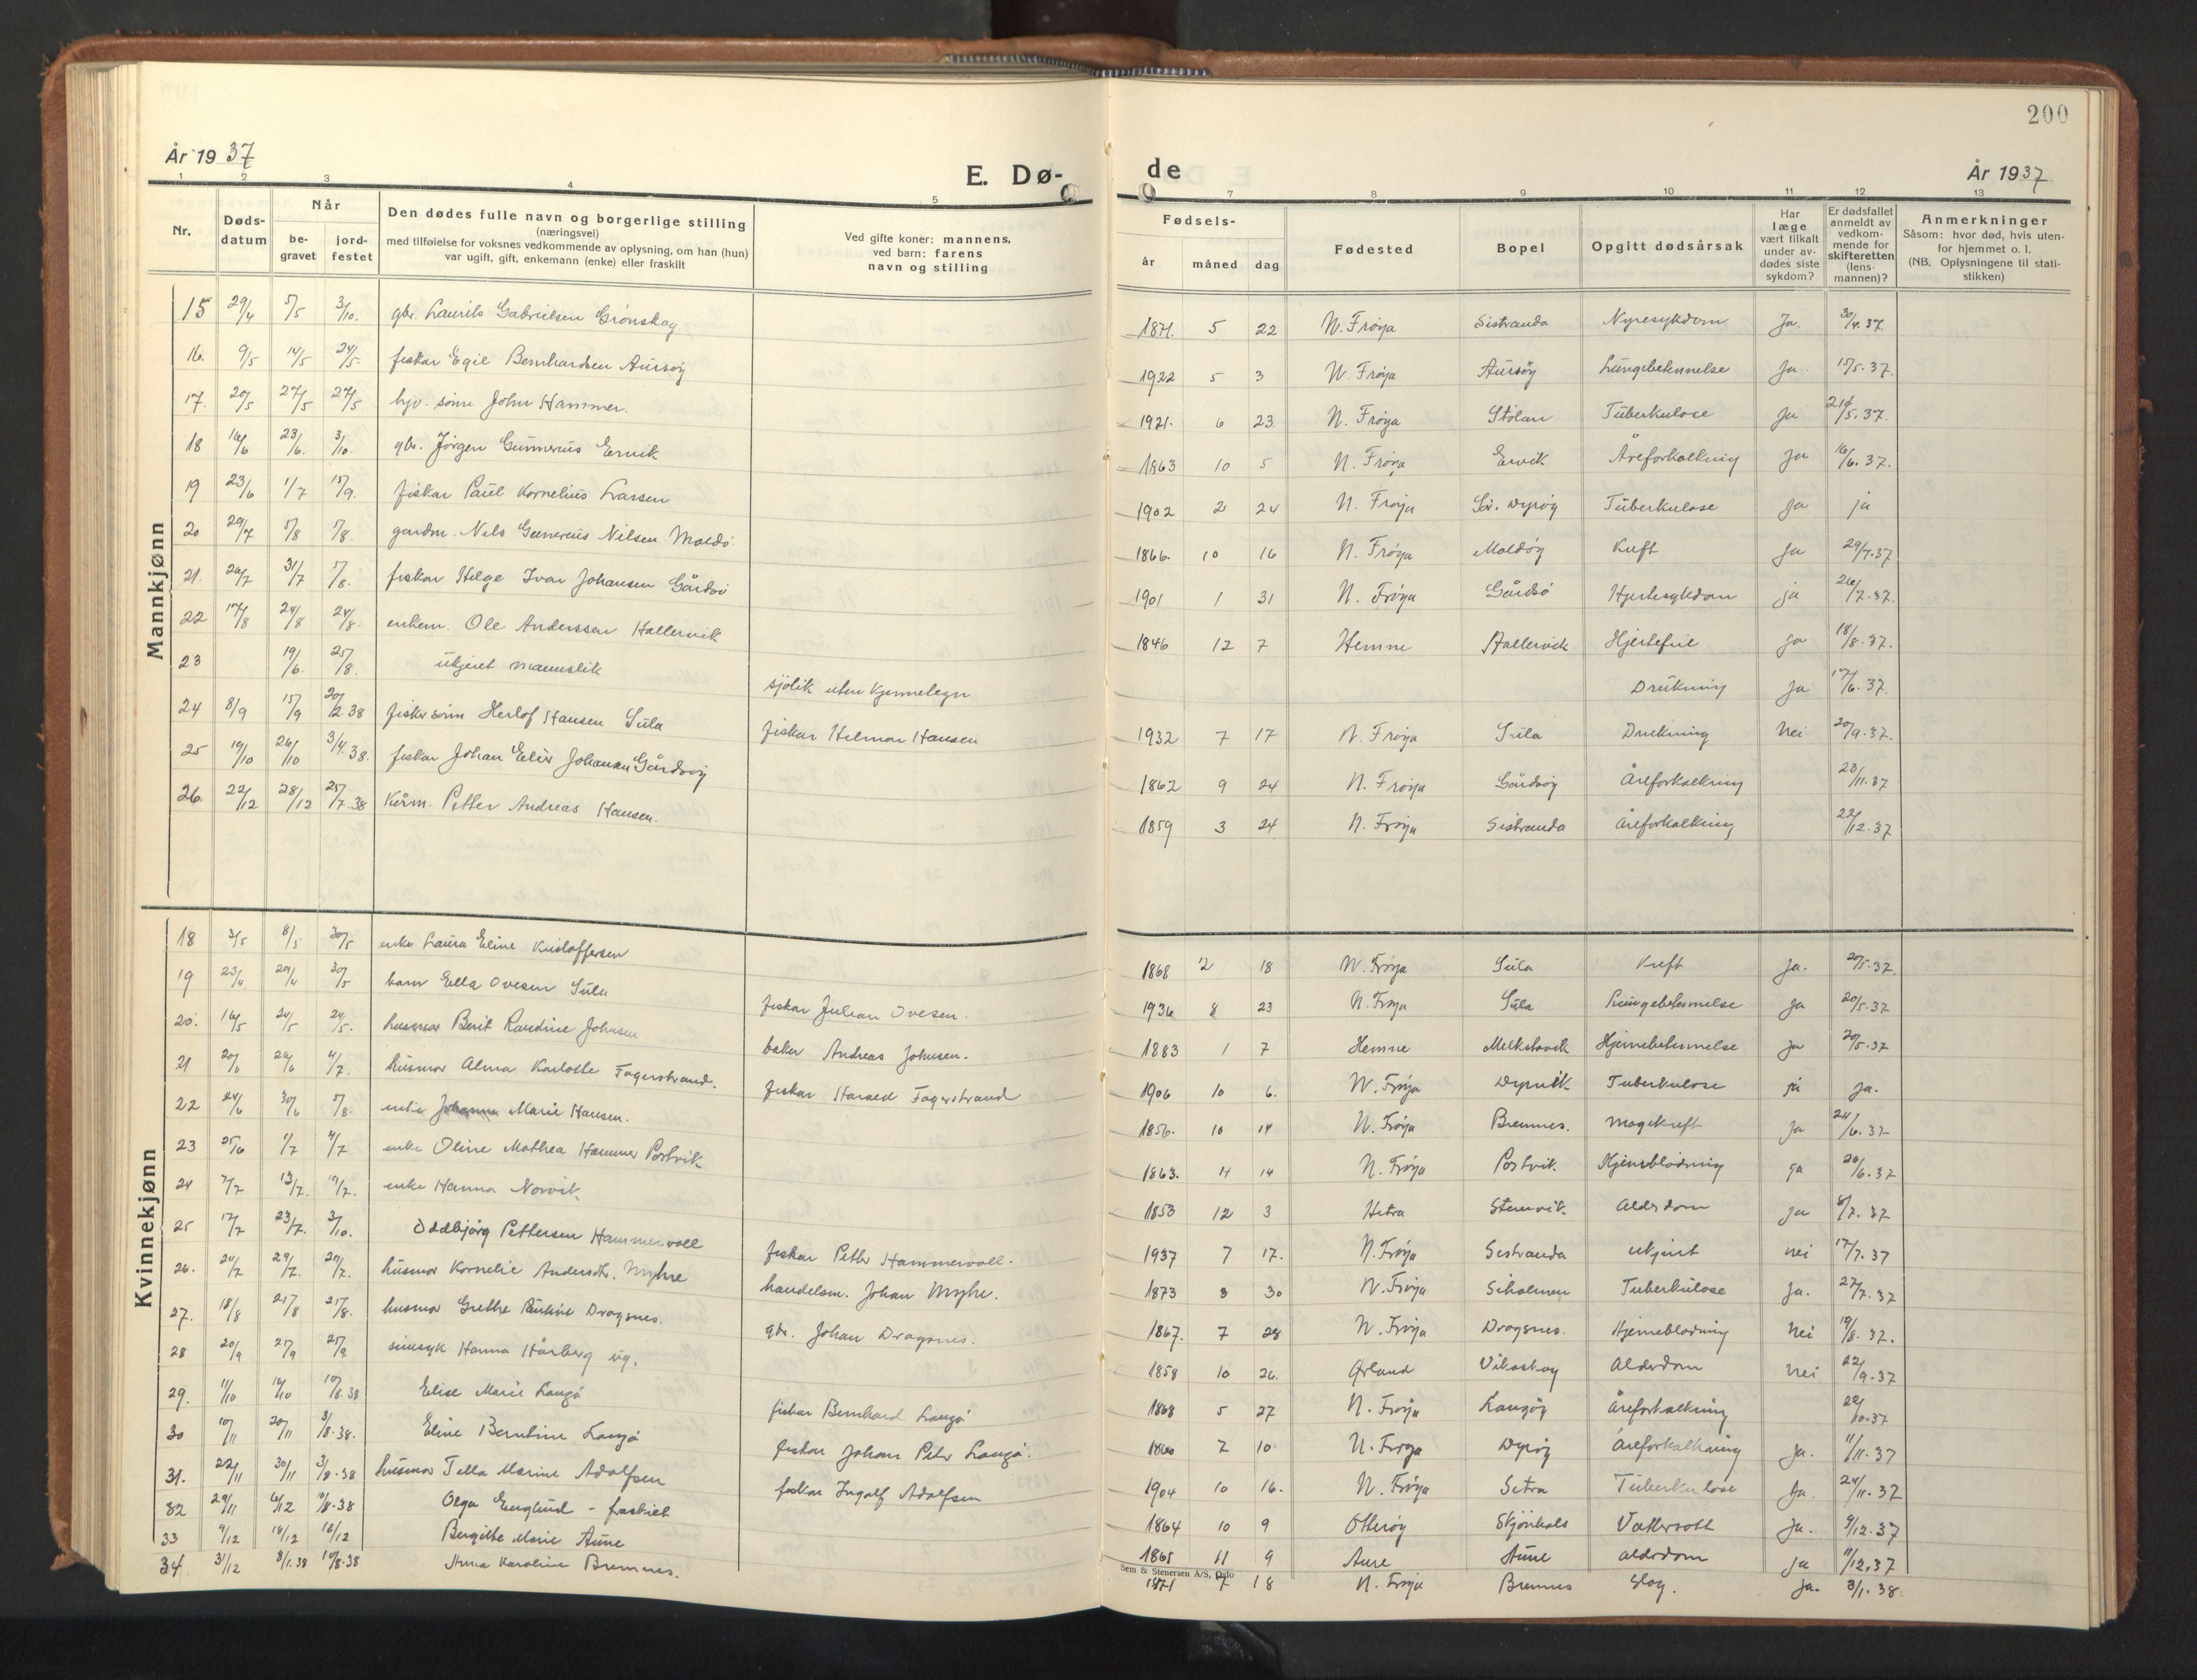 200
År 1937
E. Dø-
de
År 1937
1 2 3 4 5 7 8 9 10 11 12 13
Nr.
Døds-
datum
Når
be-
gravet
jord-
festet
Den dødes fulle navn og borgerlige stilling
(næringsvei)
med tilføielse for voksnes vedkommende av oplysning, om han (hun)
var ugift, gift, enkemann (enke) eller fraskilt
Ved gifte koner: mannens,
ved barn: farens
navn og stilling
Fødsels-
år måned dag
Fødested
Bopel
Opgitt dødsårsak
Har
læge
vært tilkalt
under av-
dødes siste
sykdom?
Er dødsfallet
anmeldt av
vedkom-
mende for
skifteretten
(lens-
mannen)?
Anmerkninger
Såsom: hvor død, hvis uten-
for hjemmet o. l.
(NB. Oplysningene til stati-
stikken)
Mannkjønn
15 29/4 5/5 3/10. gbr. Laurits Gabrielsen Grønskag 1871. 5 22 N. Frøya Sistranda Nyresykdom Ja. 30/4.37
16. 9/5 14/5 24/5. fiskar Egil Bernhardsen Aursøy 1922 5 3 N. Frøya Aursøy Lungebetennelse Ja. 15/5.37.
17. 20/5 27/5 27/5 sønn John Hammer. 1921. 6 23 N. Frøya Stølan Tuberkulose Ja /5.37.
18 16/6 23/6. 3/10. gbr. Jørgen Gunnerius Ervik 1863 10 5 N. Frøya Ervik Åreforkalkning Ja 16/6.37.
19 23/6 1/7 15/9. fiskar Paul Kornelius Larsen 1902 2 24 N. Frøya Sør. Dyrøy Tuberkulose ja ja
20 29/7 5/8 /8. gardm. Nils Gunnerius Nilsen Moldø 1866. 10 16 N. Frøya Moldøy Kreft Ja 29/7.37
21. 26/7 31/7 /8. fiskar Helge Ivar Johansen Gårdsø 1901 1 31 N. Frøya Gårdsø Hjertesykdom ja 26/7.37.
22 17/8 24/8 24/8. enkem. Ole Anderssen Hallervik 1846 12 7 Hemne Hallervik Hjertefeil ja 18/8.37.
23 19/6. 25/8. ukjent mannslik sjølik uten kjennetegn Drukning Ja 17/6.37
24 8/9 15/9 20/2.38 fiskersønn Herlof Hansen Sula fiskar Hilmar Hansen 1932 7 17 N. Frøya Sula Drukning Nei 20/9.37.
25 19/10 26/10 3/4.38. fiskar Johan Johansen Gårdsøy 1862 9 24 N. Frøya Gårdsøy Åreforkalkning 23/11.37
26. 22/12 28/12 25/7.38 Kårm. Petter Andreas Hansen. 1859 3 24 N. Frøya Sistranda Åreforkalkning 22/12.37
Kvinnekjønn
18 3/5 8/5 30/5 enke Laura Eline Kristoffersen 1868 2 18 N. Frøya Sula Kreft Ja. 20/5.37.
19 23/4. 29/4 30/5 barn Ella Ovesen Sula fiskar Julian Ovesen. 1936 8 23 N. Frøya Sula Lungebetennelse Ja 20/5.37
20. 16/5 24/5 24/5. husmor Berit Randine Johnsen baker Andreas Johnsen. 1883 1 7 Hemne Melkstavik Hjernebetennelse Ja 20/5.37
21 20/6 26/6 4/7. husmor Alma Karlotte Fagerstrand. fiskar Harald Fagerstrand 1906 10 6. N. Frøya Dyrvik Tuberkulose ja Ja.
22 24/6 30/6 /8. enke Johanna Marie Hansen. 1856. 10 14 N. Frøya Bremnes. Magekreft Ja 24/6.37
23 25/6 1/7 4/7 enke Oline Mathea Hammer Postvik 1863. 4 14 N. Frøya Postvik. Hjerneblødning ja 26/6.37
24 7/7 13/7. 19/7. enke Hanna Norvik. 1853 12 3 Hitra Stenvik. Alderdom ja 8/7.37
25 17/7 23/7. 3/10. Oddbjørg Pettersen Hammervoll fiskar Petter Hammervoll. 1937 7 17. N. Frøya Sistranda ukjent nei 17/7.37
26. 24/7 29/7. 29/7. husmor Kornelie Andersdtr. Myhre handelsm. Johan Myhre. 1873 8 30 N. Frøya Siholmen Tuberkulose Ja. 27/7.37
27. 18/8 21/8 21/8. husmor Grethe Dragsnes. gbr. Johan Dragsnes. 1867. 7 28 N. Frøya Dragsnes. Hjerneblødning Nei 19/8.37.
28 20/9 27/9 25/9. sinnsyk Hanna Hårberg ug. 1858 10 26. Ørland Vikaskag Alderdom Nei 22/9.37
29. 11/10 16/10 10/8.38 Elise Marie Langø fiskar Bernhard Langø 1868 5 27 N. Frøya Langøy Åreforkalkning 22/10.37
30 10/11 20/11 3/8.38. Eline Berntine Langø fiskar Johan Peter Langø. 1860 7 10. N. Frøya Dyrøy Åreforkalkning Ja. 11/11.37
31. 22/11 30/11 3/8.38 husmor Tella Marine Adolfsen fiskar Ingolf Adolfsen 1904 10 16. N. Frøya Setra Tuberkulose Ja. 24/11.37
32 29/11 6/12 /8.38 Olga Englund - fraskilt 1864 10 9 Otterøy Skjønhals Vattersott Ja. 9/12.37
33 9/12 18/12 18/12 Bergitte Marie Aune 1865 11 9 Aure Aune alderdom ja 11/12.37
34 31/12 8/1.38 10/8.38 Anna Karoline Bremnes. 1871 7 18 N. Frøya Bremnes Slag. Ja. 3/1.38
Sem & Stenersen A/S, Oslo